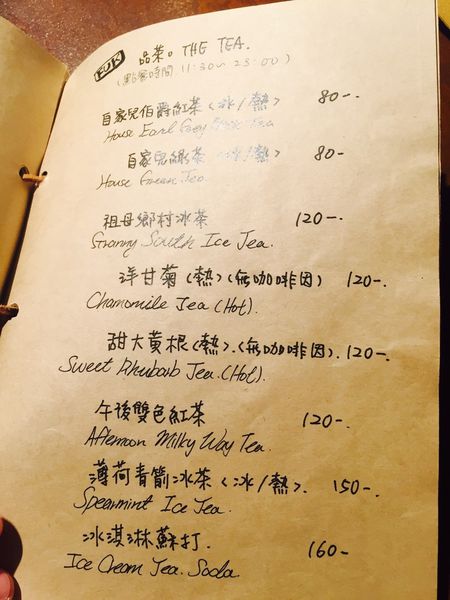 FUK 品茶。THE TEA.
(點餐時間. 11:30~23:00)
自家兒伯爵紅茶(冰/熱) 80-.
House Earl Grey Black Tea
自家兒綠茶(冰/熱) 80-
House Green Tea.
祖母鄉村冰茶 120-.
Granny South Ice Tea.
洋甘菊(熱)(無咖啡因) 120-.
Chamomile Tea (Hot).
甜大黃根(熱).(無咖啡因). 120-.
Sweet Rhubab Tea.(Hot).
午後雙色紅茶 120-.
Afternoon Milky Way Tea.
薄荷青箭冰茶(冰/熱). 150-.
Spearmint Ice Tea.
冰淇淋蘇打. 160-
Ice Cream Tea. Soda.